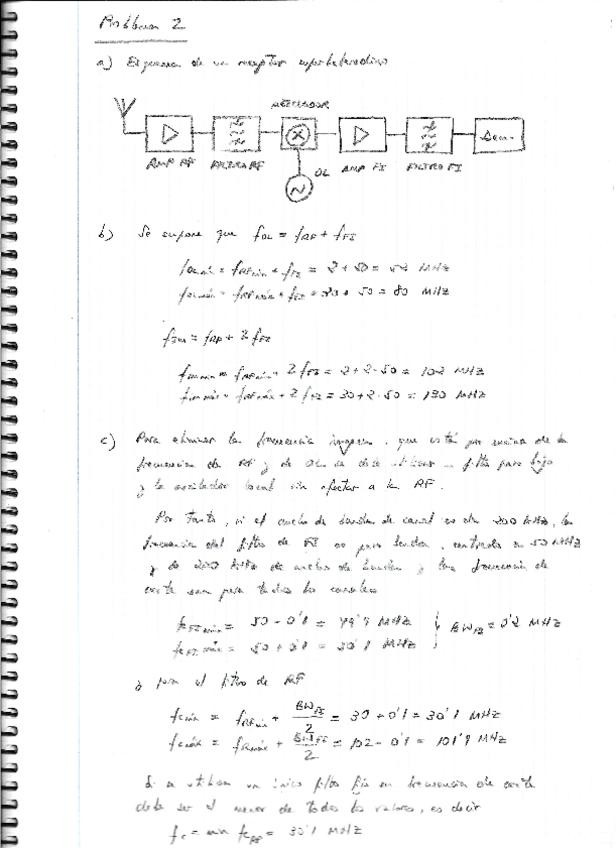 Problema 2
a) Esquema de un receptor superheterodino
MEZCLADOR
Dem.
AMP RF FILTRO RF OL AMP FI FILTRO FI
b) Se supone que fOL = fRF + fFI
fOLmín = fRFmín + fFI = 2 + 50 = 52 MHz
fOLmáx = fRFmáx + fFI = 30 + 50 = 80 MHz
fIM = fRF + 2 fFI
fIMmín = fRFmín + 2 fFI = 2 + 2·50 = 102 MHz
fIMmáx = fRFmáx + 2 fFI = 30 + 2·50 = 130 MHz
c) Para eliminar la frecuencia imagen, que está por encima de la
frecuencia de RF y de OL se debe utilizar un filtro paso bajo
y el oscilador local sin afectar a la RF.
Por tanto, si el ancho de banda de canal es de 200 kHz, la
frecuencia del filtro de FI es paso banda, centrado en 50 MHz
y de 200 kHz de ancho de banda y la frecuencia de
corte para todos los canales
fcFImín = 50 - 0'1 = 49'9 MHz
fcFImáx = 50 + 0'1 = 50'1 MHz } BWFI = 0'2 MHz
y para el filtro de RF
fcmín = fRFmáx + BWFI/2 = 30 + 0'1 = 30'1 MHz
fcmáx = + BWFI/2 = 102 - 0'1 = 101'9 MHz
Si se utiliza un único filtro fijo en frecuencia de corte
debe ser el menor de todos los valores, es decir
fc = min fcRF = 30'1 MHz